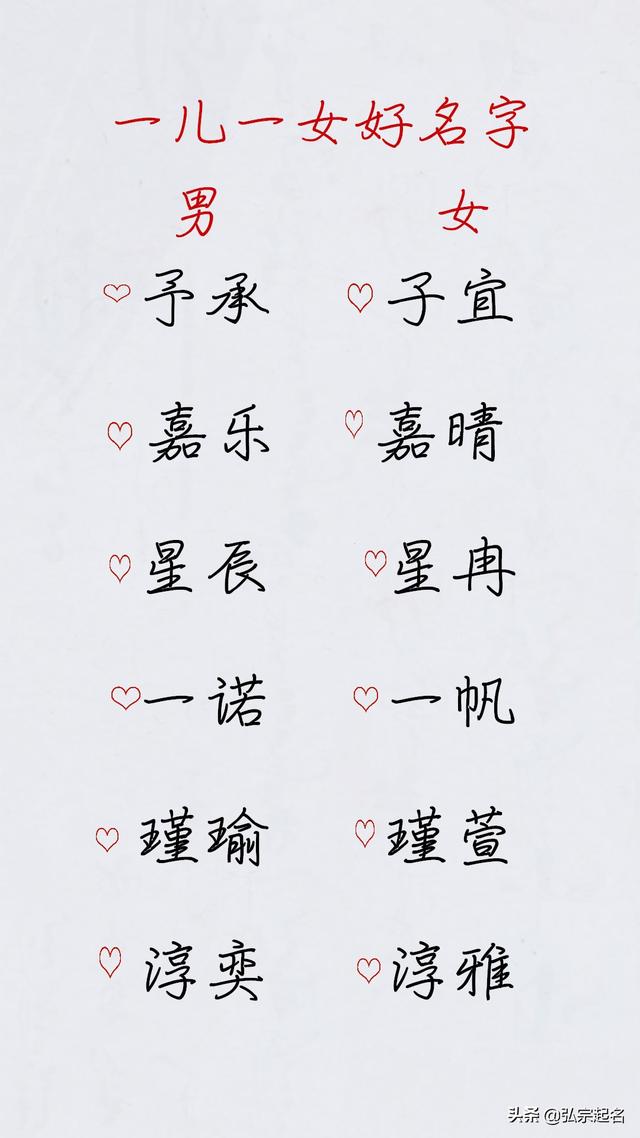 一儿一女好名字
男 女
予承 子宜
嘉乐 嘉晴
星辰 星冉
一诺 一帆
瑾瑜 瑾萱
淳奕 淳雅
头条 @弘宗起名